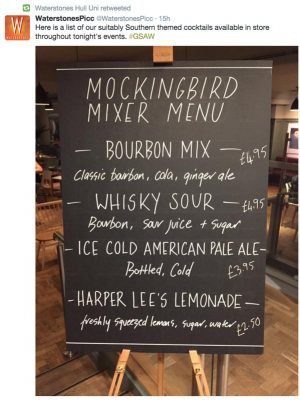 Waterstones Hull Uni retweeted
WaterstonesPicc @WaterstonesPicc · 15h
Here is a list of our suitably Southern themed cocktails available in store
throughout tonight's events. #GSAW
MOCKINGBIRD
MIXER MENU
- BOURBON MIX - £4.95
Classic bourbon, cola, ginger ale
- WHISKY SOUR - £4.95
Bourbon, sour juice + sugar
- ICE COLD AMERICAN PALE ALE-
Bottled, Cold £3.95
- HARPER LEE'S LEMONADE -
freshly squeezed lemons, sugar, water £2.50